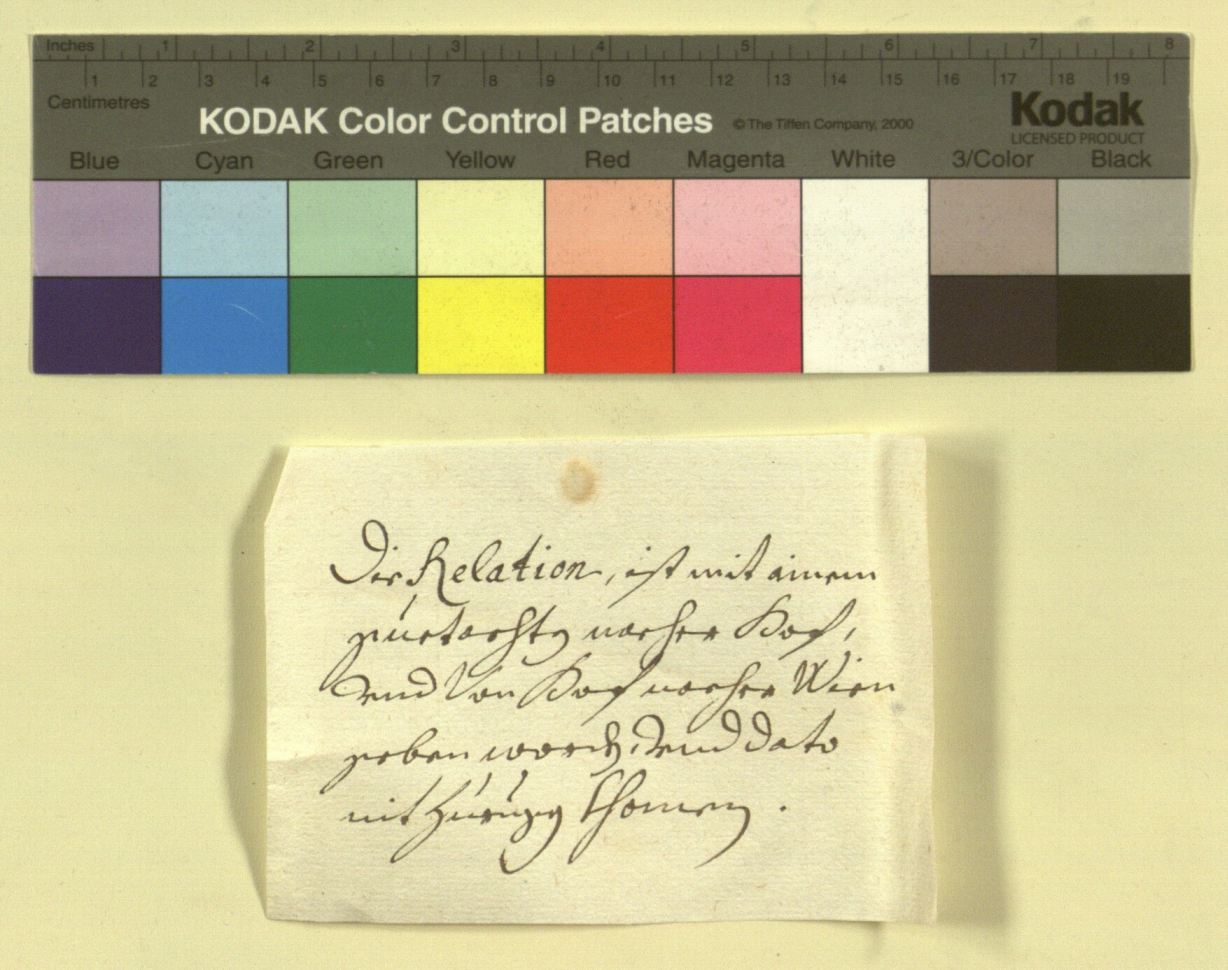 Inches 1 2 3 4 5 6 7 8
1 2 3 4 5 6 7 8 9 10 11 12 13 14 15 16 17 18 19
Centimetres
KODAK Color Control Patches © The Tiffen Company, 2000
Kodak
LICENSED PRODUCT
Blue Cyan Green Yellow Red Magenta White 3/Color Black
Die Relation, ist mit einem
guetachtn nacher Hof,
vnd Von Hof nacher Wien
geben wordn, vnd dato
nit Zurugg khomen.